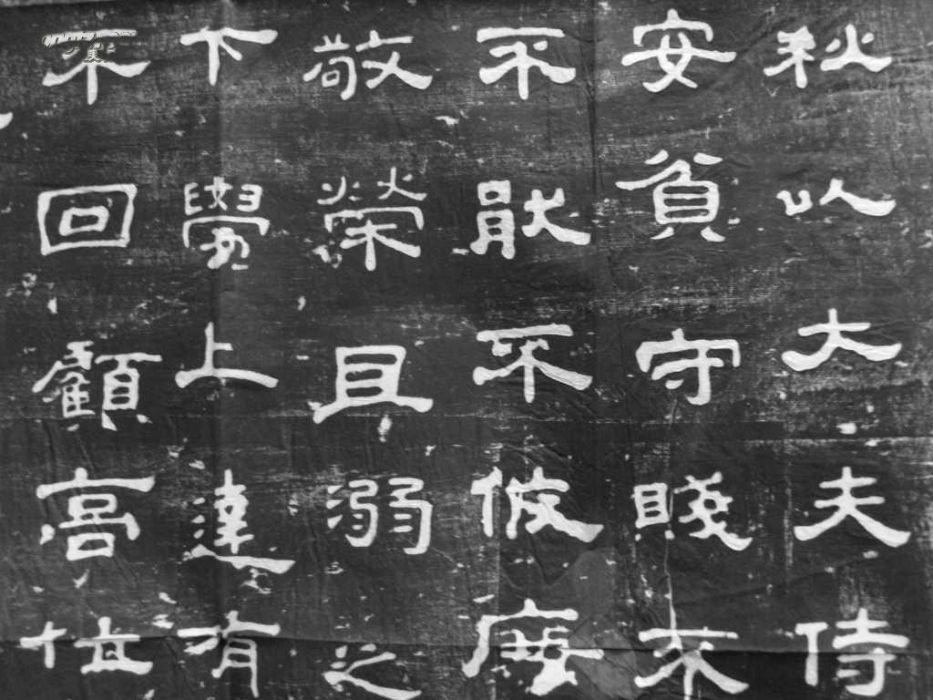 秋以大夫侍
安貧守賤不
不猒不
敬榮且溺之
下學上達有
不回顧高